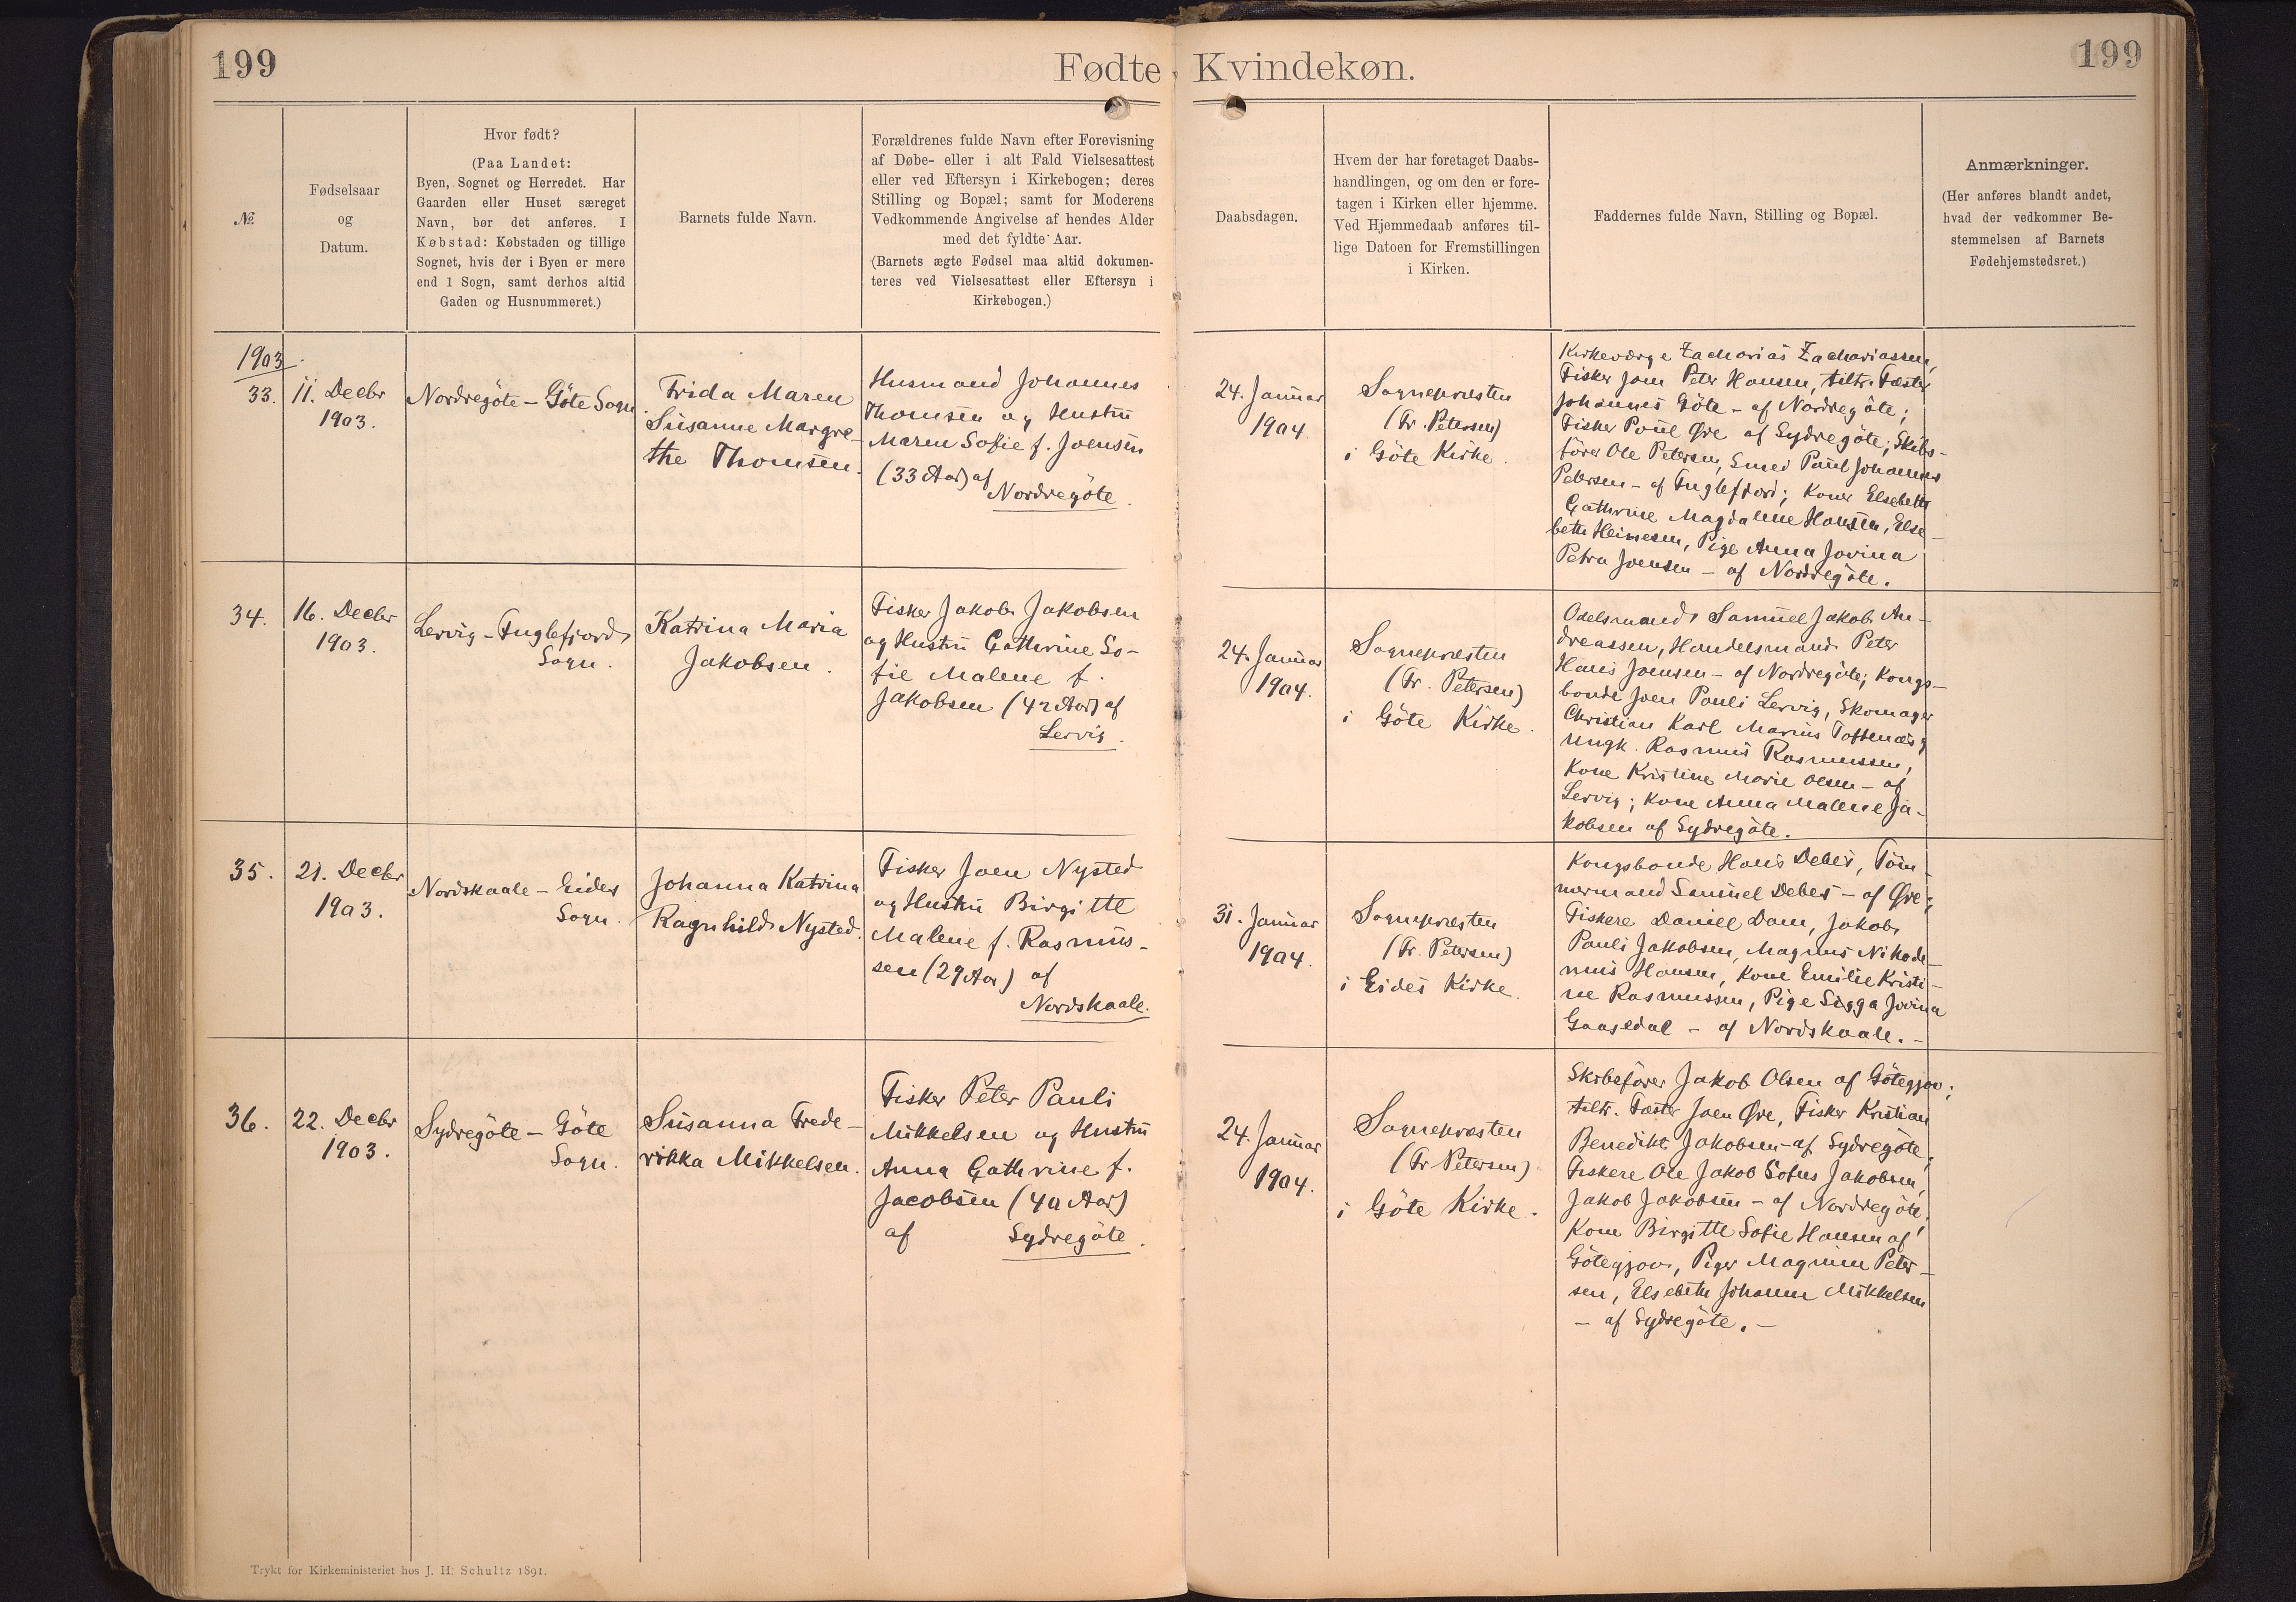 199
Fødte Kvindekøn.
199
№.
Fødselsaar
og
Datum.
Hvor født?
(Paa Landet:
Byen, Sognet og Herredet. Har
Gaarden eller Huset særeget
Navn, bør det anføres. I
Købstad: Købstaden og tillige
Sognet, hvis der i Byen er mere
end 1 Sogn, samt derhos altid
Gaden og Husnummeret.)
Barnets fulde Navn.
Forældrenes fulde Navn efter Forevisning
af Døbe- eller i alt Fald Vielsesattest
eller ved Eftersyn i Kirkebogen; deres
Stilling og Bopæl; samt for Moderens
Vedkommende Angivelse af hendes Alder
med det fyldte Aar.
(Barnets ægte Fødsel maa altid dokumen-
teres ved Vielsesattest eller Eftersyn i
Kirkebogen.)
Daabsdagen.
Hvem der har foretaget Daabs-
handlingen, og om den er fore-
tagen i Kirken eller hjemme.
Ved Hjemmedaab anføres til-
lige Datoen for Fremstillingen
i Kirken.
Faddernes fulde Navn, Stilling og Bopæl.
Anmærkninger.
(Her anføres blandt andet,
hvad der vedkommer Be-
stemmelsen af Barnets
Fødehjemstedsret.)
1903
33.
11. Decbr
1903.
Nordregöte - Göte Sogn.
Frida Maren
Susanne Margre-
the Thomsen.
Husmand Johannes
Thomsen og Hustru
Maren Sofie f. Joensen
(33 Aar) af
Nordregöte.
24. Januar
1904
Sognepræsten
(Fr. Petersen)
i Göte Kirke.
Kirkeværge Zacharias Zachariassen,
Fisker Joen Peter Hansen, tiltr. Fæster
Johannes Göte - af Nordregöte;
Fisker Poul Øre af Sydregöte; Skibs-
förer Ole Petersen, Smed Paul Johannes
Petersen - af Fuglefjord; Koner Elsebeth
Cathrine Magdalene Hansen, Else-
beth Heinesen, Pige Anna Jovina
Petra Joensen - af Nordregöte.
34.
16. Decbr
1903.
Lervig - Fuglefjords
Sogn.
Katrina Maria
Jakobsen.
Fisker Jakob Jakobsen
og Hustru Cathrine So-
fie Malene f.
Jakobsen (42 Aar) af
Lervig.
24. Januar
1904.
Sognepræsten
(Fr. Petersen)
i Göte Kirke.
Odelsmand Samuel Jakob An-
dreassen, Handelsmand Peter
Hans Joensen - af Nordregöte; Kongs-
bonde Joen Pauli Lervig, Skomager
Christian Karl Marius Toftenæs,
Ungk. Rasmus Rasmussen,
Kone Kristine Marie Olsen - af
Lervig; Kone Anna Malene Ja-
kobsen af Sydregöte.
35.
21. Decbr
1903.
Nordskaale - Eides
Sogn.
Johanna Katrina
Ragnhild Nysted.
Fisker Joen Nysted
og Hustru Birgitte
Malene f. Rasmus-
sen (29 Aar) af
Nordskaale.
31. Januar
1904.
Sognepræsten
(Fr. Petersen)
i Eides Kirke.
Kongsbonde Hans Debes, Töm-
mermand Samuel Debes - af Øre;
Fiskere Daniel Dam, Jakob
Pauli Jakobsen, Magnus Nikode-
mus Hansen, Kone Emilie Kristi-
ne Rasmussen, Pige Sigga Jovina
Gaasedal - af Nordskaale. -
36.
22. Decbr
1903.
Sydregöte - Göte
Sogn.
Susanna Frede-
rikka Mikkelsen.
Fisker Peter Pauli
Mikkelsen og Hustru
Anna Cathrine f.
Jacobsen (40 Aar)
af Sydregöte.
24. Januar
1904.
Sognepræsten
(Fr. Petersen)
i Göte Kirke.
Skibsförer Jakob Olsen af Götegjov;
tiltr. Fæster Joen Øre, Fisker Kristian
Benedikt Jakobsen - af Sydregöte;
Fiskere Ole Jakob Sofus Jakobsen,
Jakob Jakobsen - af Nordregöte;
Kone Birgitte Sofie Hansen af
Götegjov, Piger Magnine Peter-
sen, Elsebeth Johanne Mikkelsen
- af Sydregöte. -
Trykt for Kirkeministeriet hos J. H. Schultz 1891.